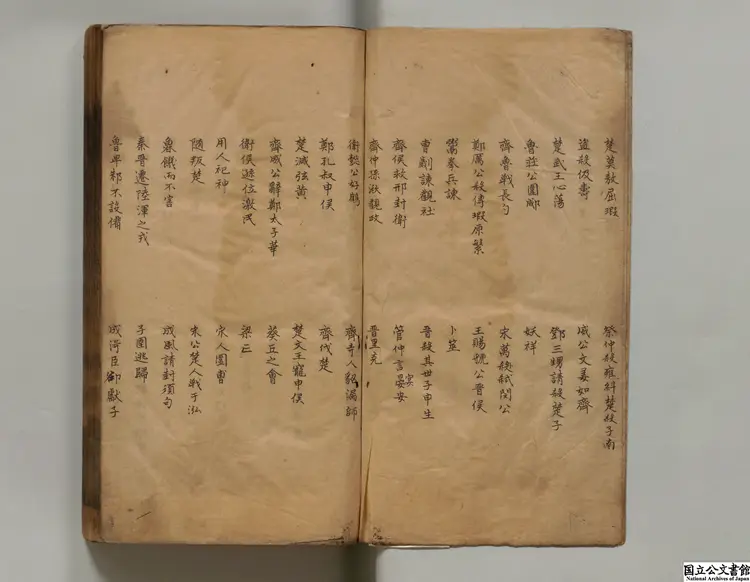 楚莫敖屈瑕
祭仲殺雍糾楚殺子南
盜殺伋壽
威公文姜如齊
楚武王心蕩
鄧三甥請殺楚子
魯莊公圍郕
妖祥
齊魯戰長勺
宋萬殺弒閔公
鄭厲公殺傅瑕原繁
王賜虢公晉侯
鬻拳兵諫
卜筮
曹劌諫觀社
晉殺其世子申生
齊侯救邢封衛
管仲言晏安
宴
齊仲孫湫觀政
晉里克
衛懿公好鶴
齊寺人貂漏師
鄭孔叔申侯
齊伐楚
楚滅弦黃
楚文王寵申侯
齊威公辭鄭太子華
葵丘之會
衛侯遜位激民
梁亡
用人祀神
宋人圍曹
隨叛楚
宋公楚人戰于泓
魯饑而不害
成風請封須句
秦晉遷陸渾之戎
子圉逃歸
魯卑邾不設備
成得臣郤獻子
国立公文書館
National Archives of Japan